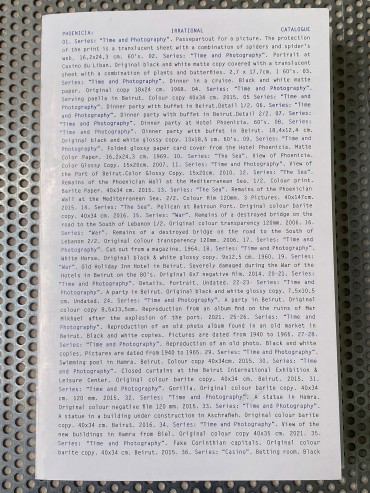 PHOENICIA: IRRATIONAL CATALOGUE
01. Series: "Time and Photography". Passepartout for a picture. The protection
of the print is a translucent sheet with a combination of spiders and spider's
web. 16,2x24,3 cm. 60's. 02. Series: "Time and Photography". Portrait at
Casino du Liban. Original black and white matte copy covered with a translucent
sheet with a combination of plants and butterflies. 2,7 x 17,7cm. | 60's. 03.
Series: "Time and Photography". Dinner in a cruise. Black and white matte
paper. Original copy 18x24 cm. 1968. 04. Series: "Time and Photography".
Serving paella in Beirut. Colour copy 40x34 cm. 2015. 05 Series: "Time and
Photography". Dinner party with buffet in Beirut.Detail 1/2. 06. Series: "Time
and Photography". Dinner party with buffet in Beirut.Detail 2/2. 07. Series:
"Time and Photography". Dinner party at Hotel Phoenicia. 60's. 08. Series:
"Time and Photography". Dinner party with buffet in Beirut. 18,4x12,4 cm.
Original black and white glossy copy. 13x18,5 cm. 60's. 09. Series: "Time and
Photography". Folded glossy paper card cover from the Hotel Phoenicia. Matte
Color Paper. 16,2x24,3 cm. 1969. 10. Series: "The Sea". View of Phoenicia.
Color Glossy Copy. 15x20cm. 2007. 11. Series: "Time and Photography". View of
the Port of Beirut.Color Glossy Copy. 15x20cm. 2010. 12. Series: "The Sea".
Remains of the Phoenician Wall at the Mediterranean Sea. 1/2. Colour print.
Barite Paper. 40x34 cm. 2015. 13. Series: "The Sea". Remains of the Phoenician
Wall at the Mediterranean Sea. 2/2. Colour film 120mm. 3 Pictures. 40x147cm.
2015. 14. Series: "The Sea". Pelican at Botroun Port. Original colour barite
copy. 40x34 cm. 2016. 15. Series: "War". Remains of a destroyed bridge on the
road to the South of Lebanon 1/2. Original colour transparency 120mm. 2006. 16.
Series: "War". Remains of a destroyed bridge on the road to the South of
Lebanon 2/2. Original colour transparency 120mm. 2006. 17. Series: "Time and
Photography". Cut out from a magazine. 1964. 18. Series: "Time and Photography".
White Horse. Original black & white glossy copy. 9x12.5 cm. 1960. 19. Series:
"War". Old Holiday Inn Hotel in Beirut. Severely damaged during the War of the
hotels in Beirut on the 80's. Original 6x7 negative film. 2014. 20-21. Series:
"Time and Photography". Details. Portrait. Undated. 22-23- Series: "Time and
Photography". A party in Beirut. Original black and white glossy copy. 7,5x10,5
cm. Undated. 24. Series: "Time and Photography". A party in Beirut. Original
colour copy 8,5x13,5cm. Reproduction from an album find on the ruins of Mar
Mikhael after the explosion of the port. 2021. 25-26. Series: "Time and
Photography". Reproduction of an old photo album found in an old market in
Beirut. Black and white copies. Pictures are dated from 1940 to 1965. 27-28.
Series: "Time and Photography". Reproduction of an old photo. Black and white
copies. Pictures are dated from 1940 to 1965. 29. Series: "Time and Photography".
Swimming pool in Hamra. Beirut. Colour copy 40x34cm. 2015. 30. Series: "Time
and Photography". Closed curtains at the Beirut International Exhibition &
Leisure Center. Original colour barite copy. 40x34 cm. Beirut. 2015. 31.
Series: "Time and Photography". Gorilla. Original colour barite copy. 40x34
cm. 120 mm. 2015. 32. Series: "Time and Photography". A statue in Hamra.
Original colour negative film 120 mm. 2015. 33. Series: "Time and Photography".
A statue in a building under construction in Aschrafieh. Original colour barite
copy. 40x34 cm. Beirut. 2016. 34. Series: "Time and Photography". View of the
new buildings in Hamra from Biel. Original colour copy 40x35 cm. 2021. 35.
Series: "Time and Photography". Fake Corinthian capitals. Original colour
barite copy. 40x34 cm. Beirut. 2015. 36. Series: "Casino". Betting room. Black